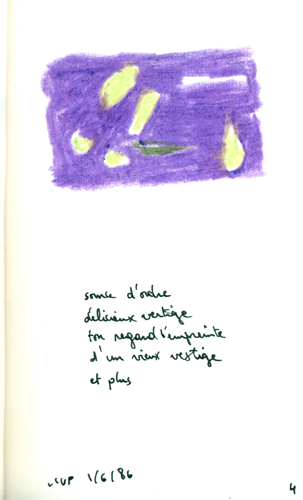 source d'ordre
délicieux vertige
ton regard l'empreinte
d'un vieux vestige
et plus
1/6/86
4